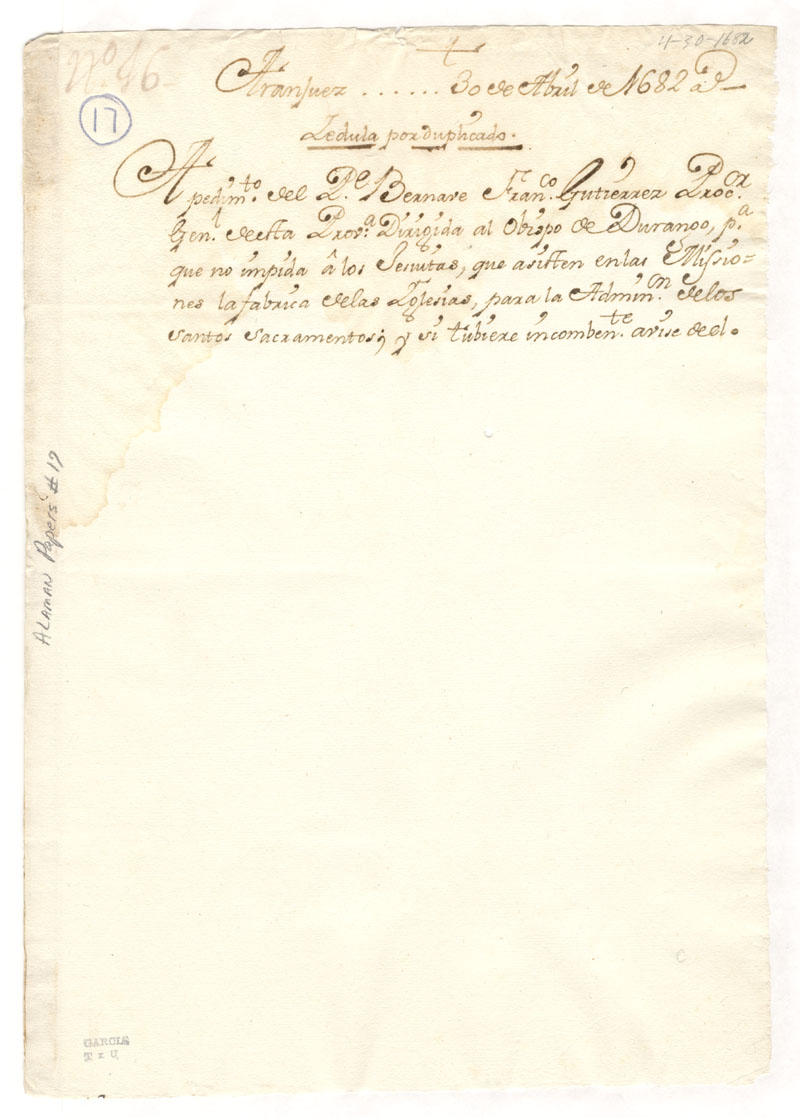 4-30-1682
Nº 46
17
Aranjuez ...... 30 de Abril de 1682 aˢ
Zedula por duplicado.
A pedimᵗᵒ. del Pᵉ. Bernave Franᶜᵒ. Gutierrez Procᵒʳ.
Genˡ. de esta Provᵃ. Dirigida al Obispo de Durango, pᵃ.
que no impida â los Jesuitas, que asisten en las Missio=
nes la fabrica de las Yglesias, para la Adminᵒⁿ. de los
santos sacramentos; y si tubiere incombenᵗᵉ. avise de el.
ALAMAN Papers # 17
GARCIA